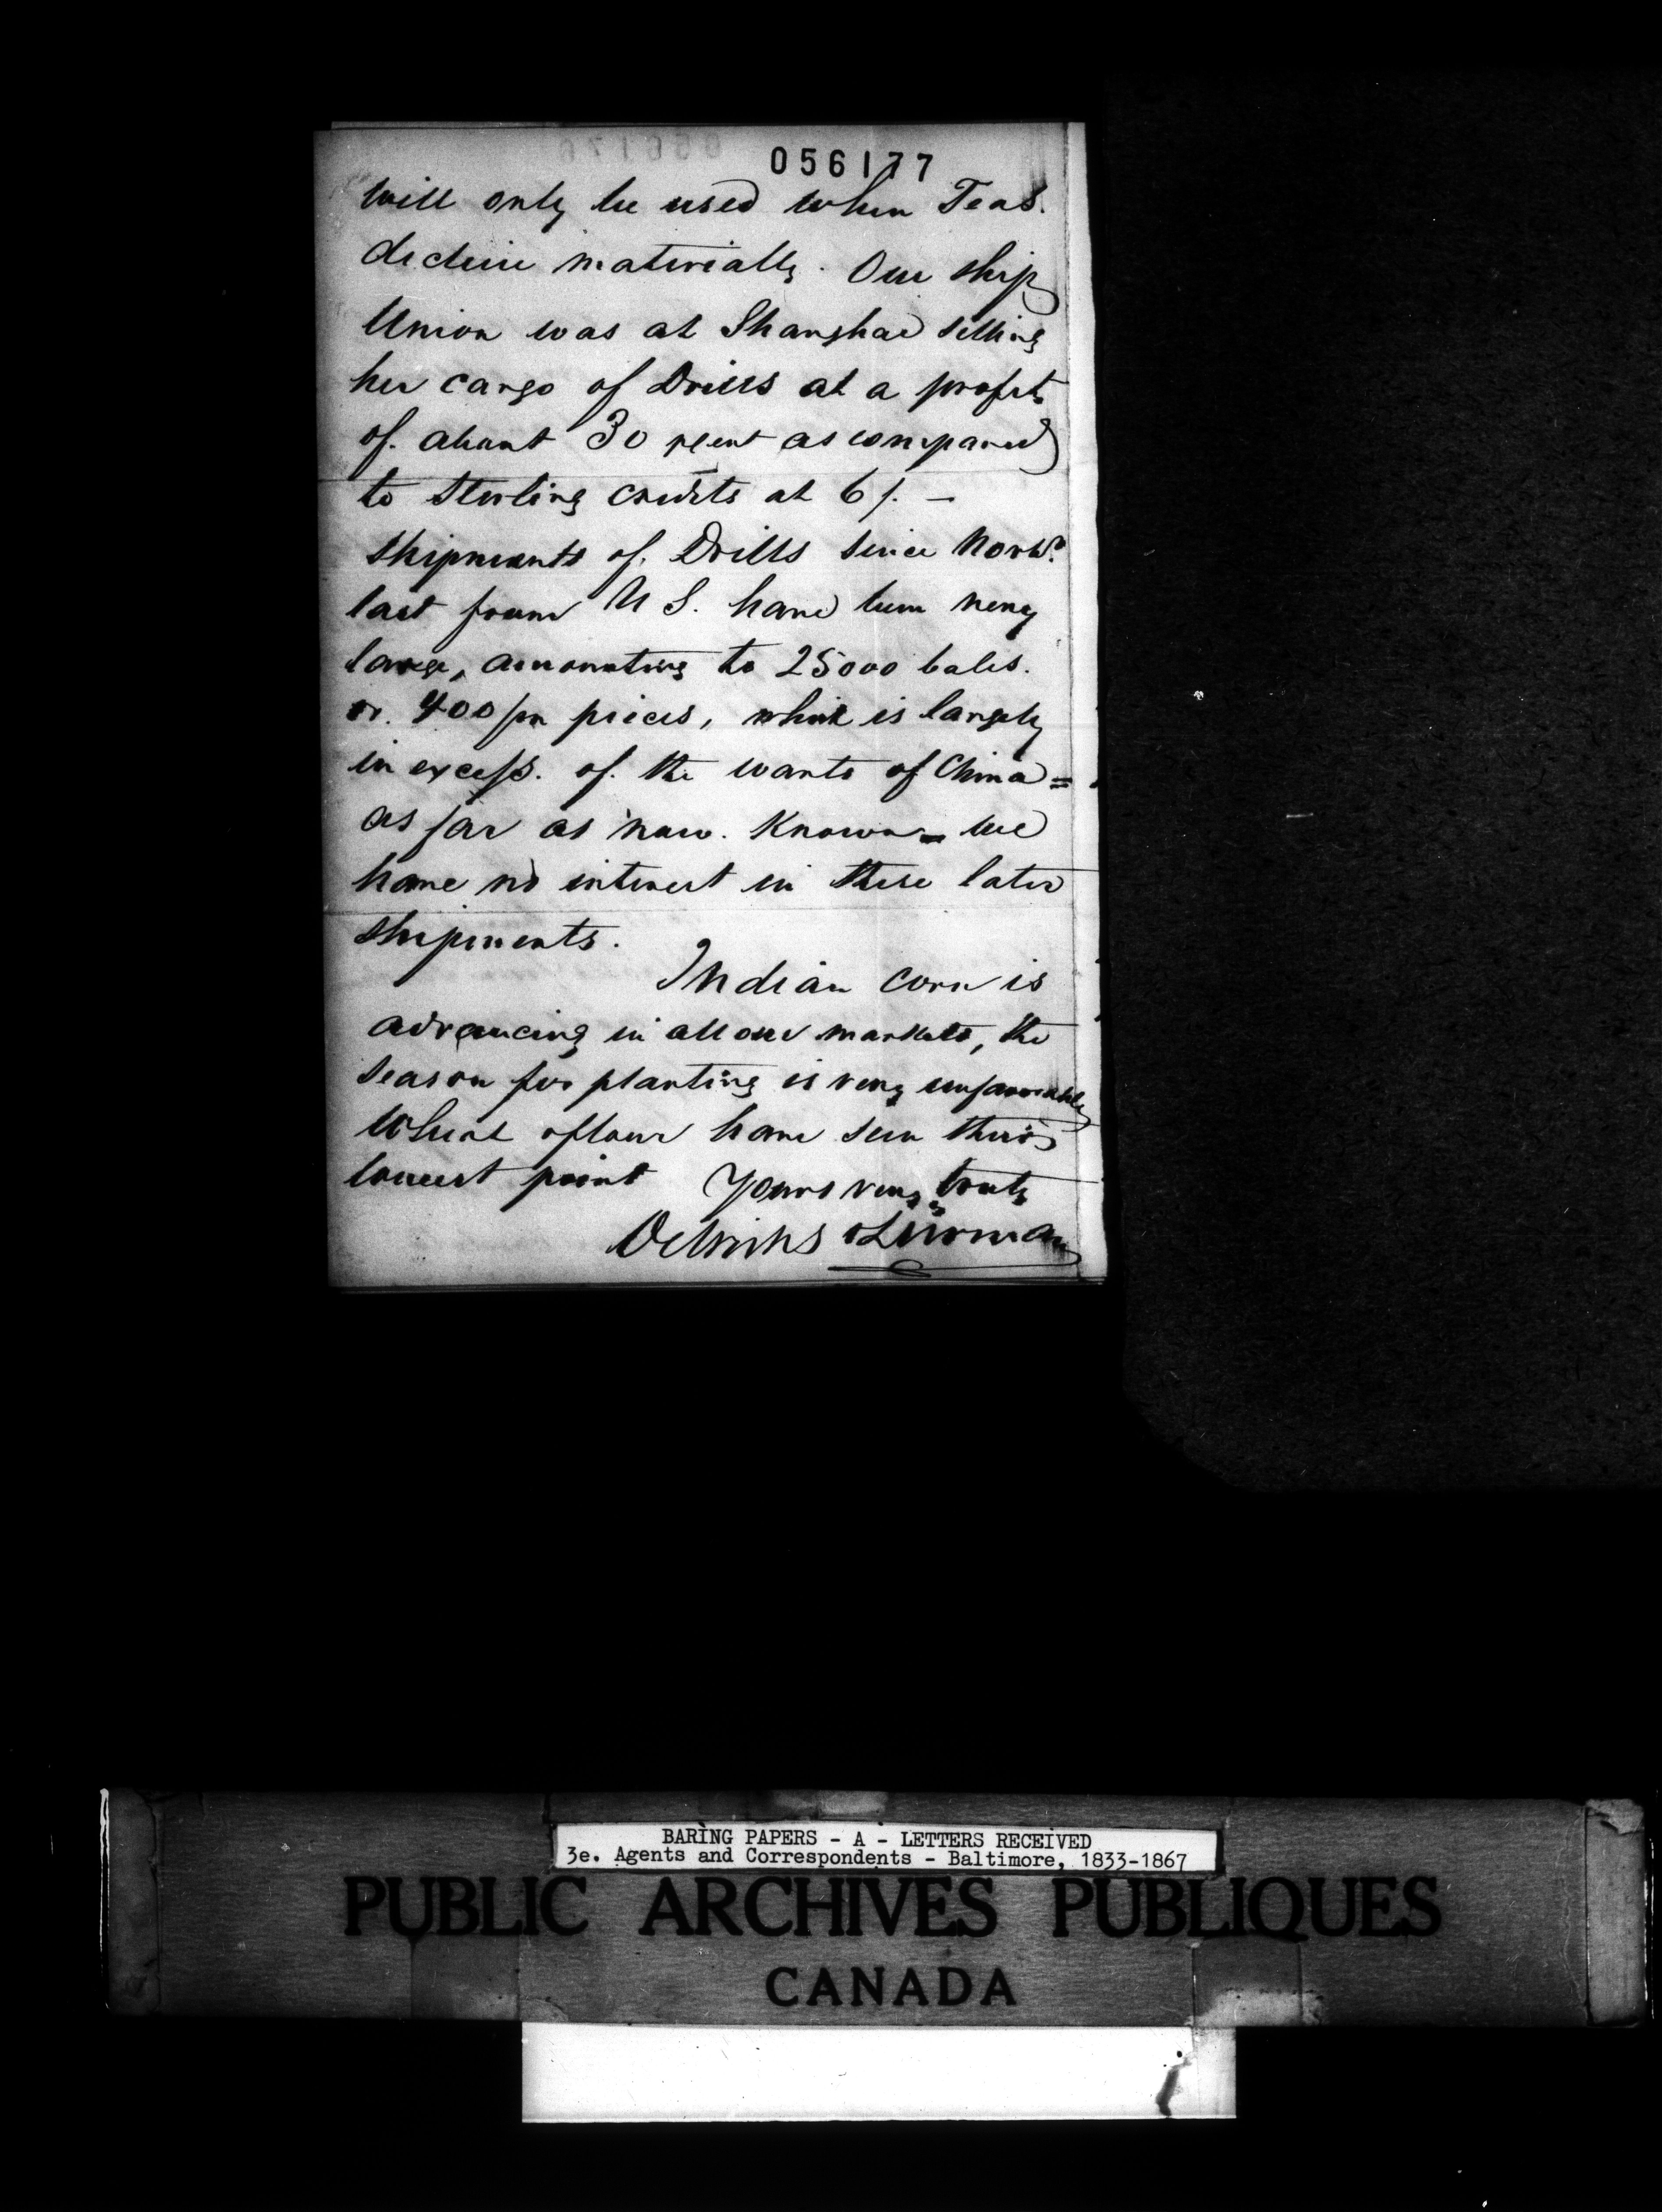 056177
will only be used when Teas.
decline materially. Our ship
Union was at Shanghae selling
her cargo of Drills at a profit
of about 30 pcent as compared
to Sterling credits at 6/. –
Shipments of Drills since Novbr.
last from U S. have been very
large, amounting to 25000 bales.
or. 400/m pieces, which is largely
in excess. of the wants of China =
as far as now. Known = we
have no interest in these later
shipments.
Indian Corn is
advancing in all our markets, the
season for planting is very unfavorable
Wheat & flour have seen their
lowest point Yours very truly
Oelrichs & Lürman
BARING PAPERS - A - LETTERS RECEIVED
3e. Agents and Correspondents - Baltimore, 1833-1867
PUBLIC ARCHIVES PUBLIQUES
CANADA